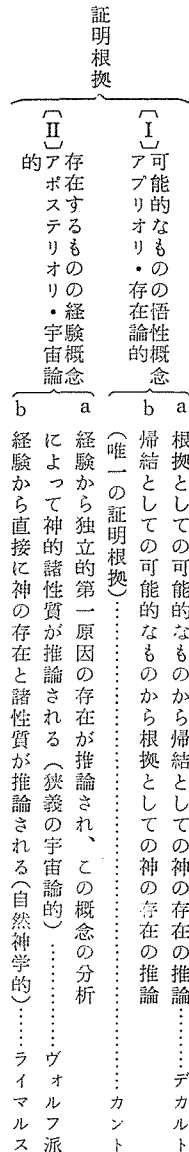 証明根拠
〔Ⅰ〕
可能的なものの悟性概念
アプリオリ・存在論的
a 根拠としての可能的なものから帰結としての神の存在の推論……デカルト
b 帰結としての可能的なものから根拠としての神の存在の推論
(唯一の証明根拠)……カント
〔Ⅱ〕
存在するものの経験概念
アポステリオリ・宇宙論
的
a 経験から独立的第一原因の存在が推論され、この概念の分析
によって神的諸性質が推論される(狭義の宇宙論的)……ヴォルフ派
b 経験から直接に神の存在と諸性質が推論される(自然神学的)……ライマルス